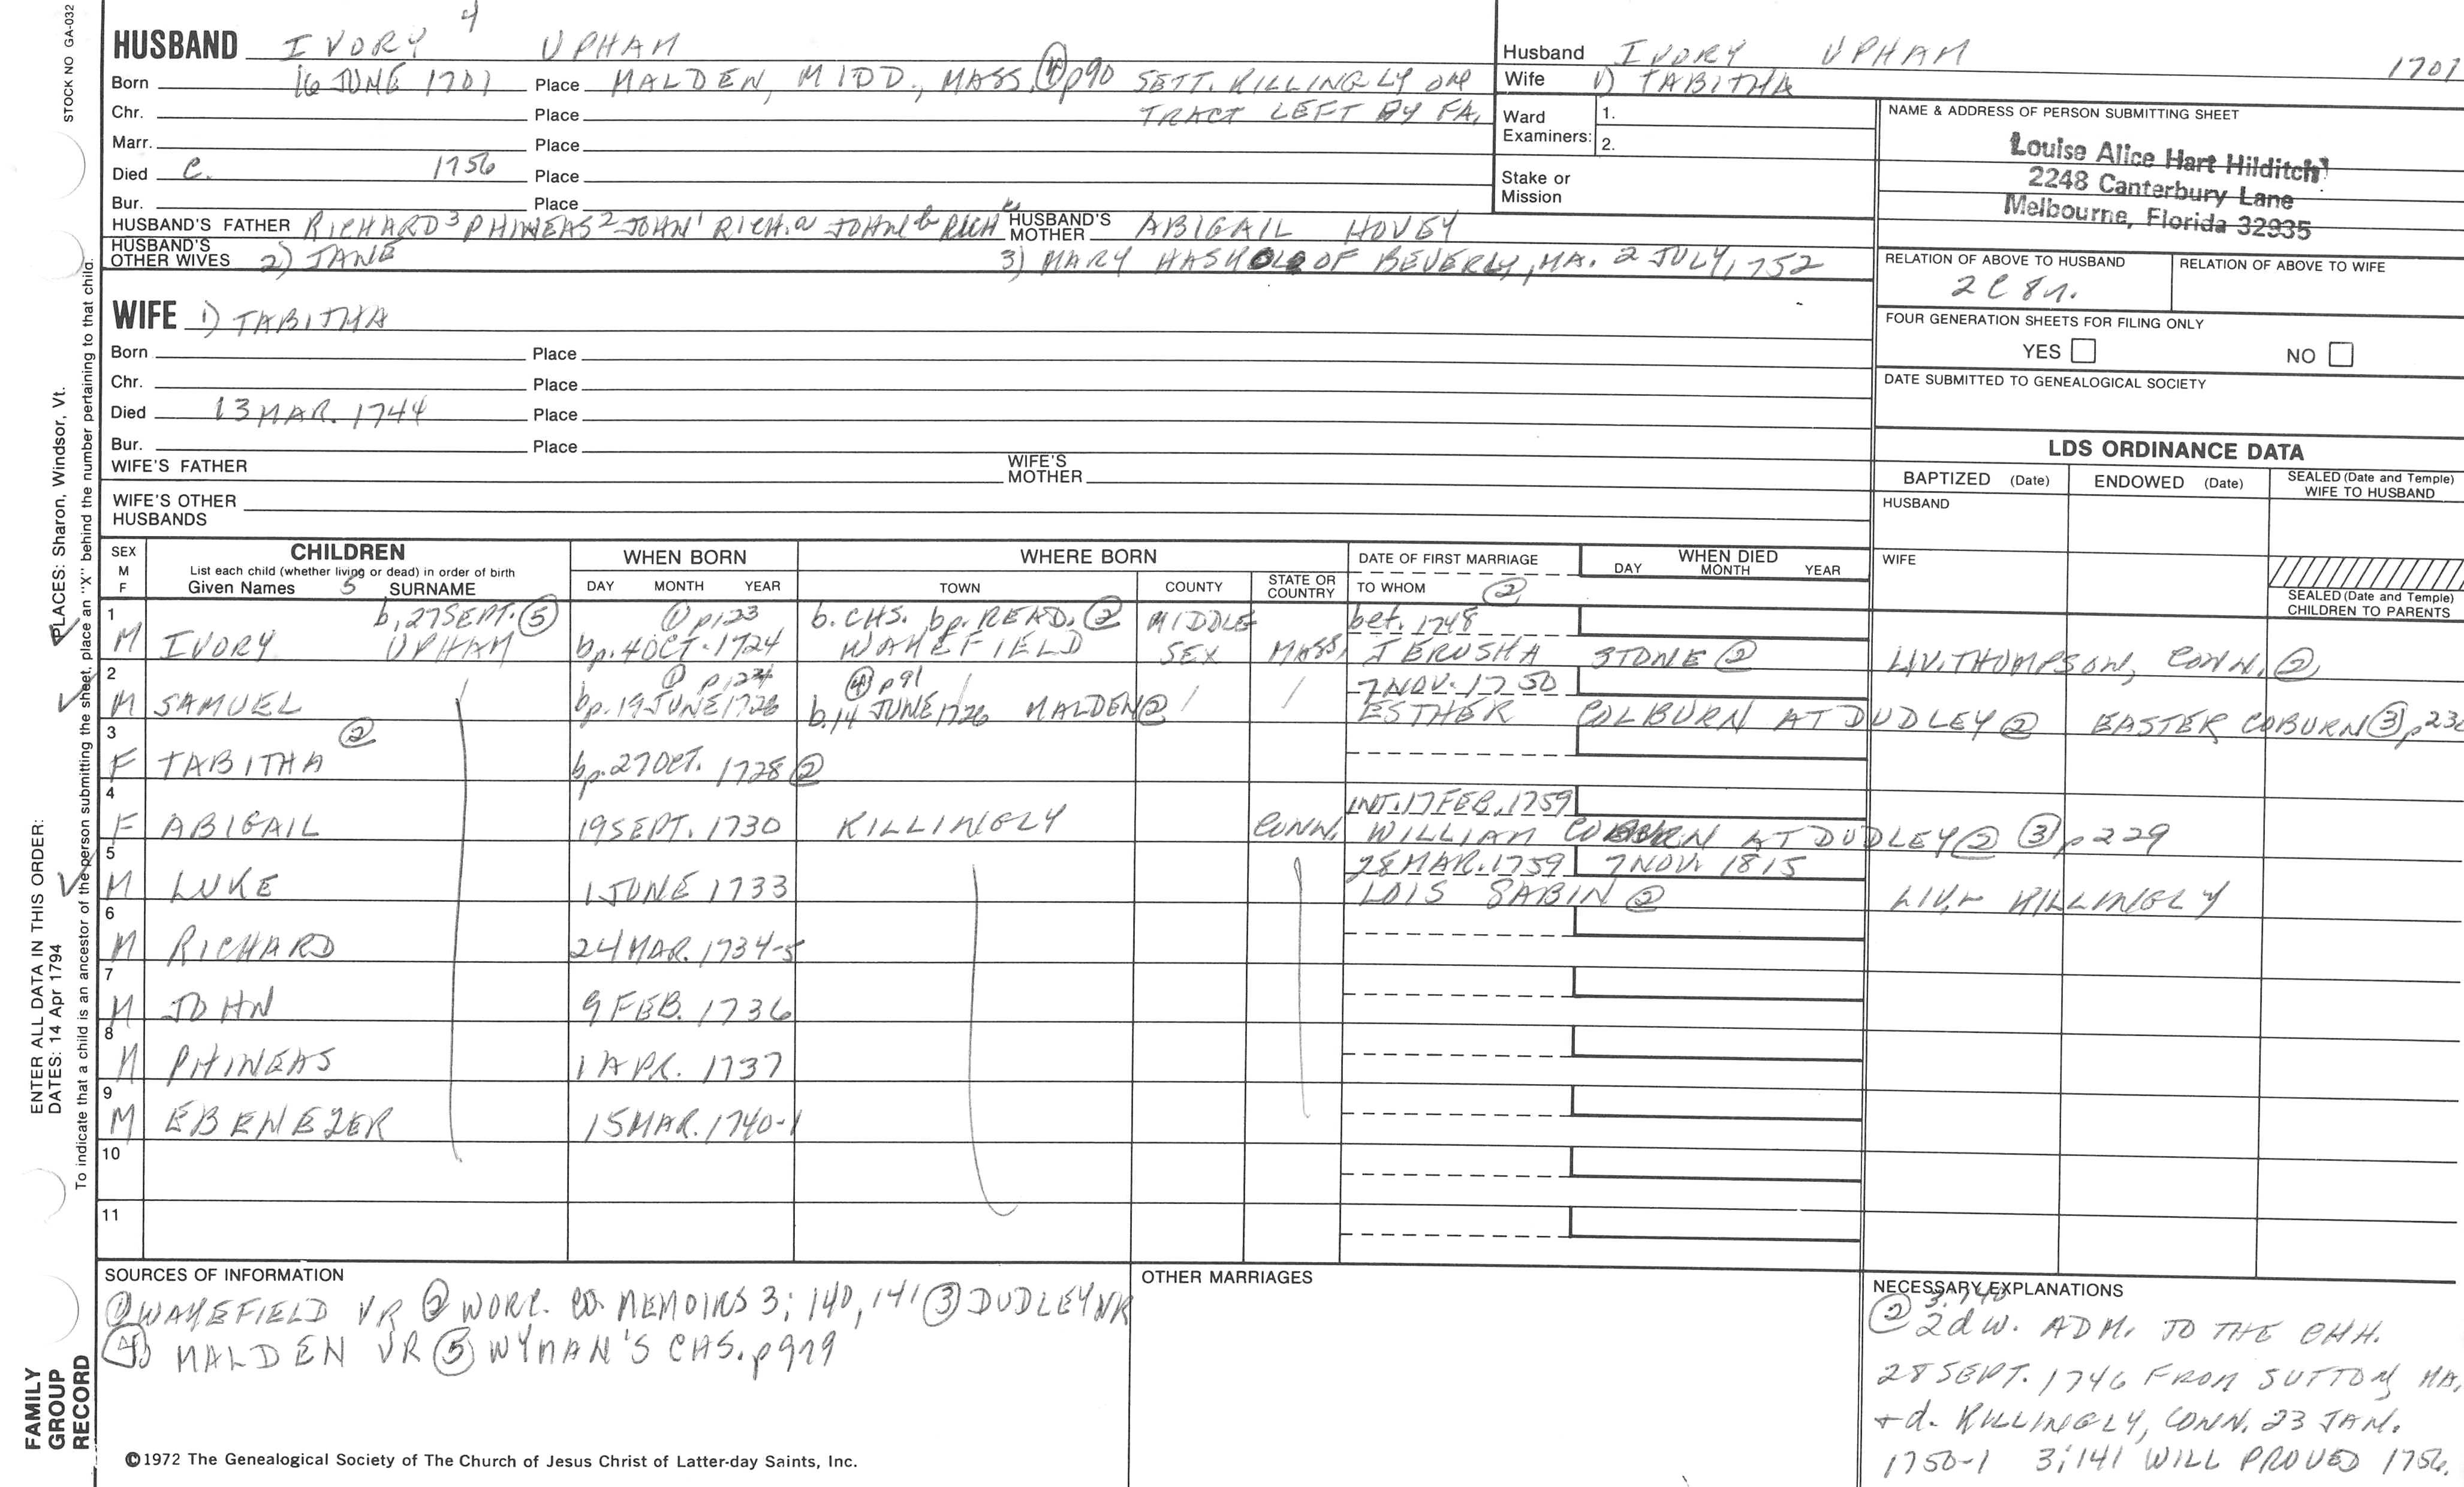 STOCK NO GA-032
4
HUSBAND IVORY UPHAM
Born 16 JUNE 1701 Place MALDEN, MIDD., MASS. ④ p90 SETT. KILLINGLY ON
Chr. Place TRACT LEFT BY FA.
Marr. Place
Died C. 1756 Place
Bur. Place
HUSBAND'S FATHER RICHARD 3 PHINEAS 2 JOHN 1 RICH. a JOHN b RICH c HUSBAND'S MOTHER ABIGAIL HOVEY
HUSBAND'S OTHER WIVES 2) JANE 3) MARY OF BEVERLY, MA. 2 JULY, 1752
WIFE 1) TABITHA
Born Place
Chr. Place
Died 13 MAR. 1744 Place
Bur. Place
WIFE'S FATHER WIFE'S MOTHER
WIFE'S OTHER HUSBANDS
Husband IVORY UPHAM 1701
Wife 1) TABITHA
Ward Examiners: 1.
2.
Stake or Mission
NAME & ADDRESS OF PERSON SUBMITTING SHEET
Louise Alice Hart Hilditch
2248 Canterbury Lane
Melbourne, Florida 32935
RELATION OF ABOVE TO HUSBAND RELATION OF ABOVE TO WIFE
2C 8r.
FOUR GENERATION SHEETS FOR FILING ONLY
YES NO
DATE SUBMITTED TO GENEALOGICAL SOCIETY
LDS ORDINANCE DATA
BAPTIZED (Date) ENDOWED (Date) SEALED (Date and Temple) WIFE TO HUSBAND
HUSBAND
WIFE
SEALED (Date and Temple) CHILDREN TO PARENTS
SEX M F
CHILDREN
List each child (whether living or dead) in order of birth
Given Names 5 SURNAME
WHEN BORN
DAY MONTH YEAR
WHERE BORN
TOWN COUNTY STATE OR COUNTRY
DATE OF FIRST MARRIAGE
TO WHOM ②
WHEN DIED
DAY MONTH YEAR
1 b. 27 SEPT. ⑤ ① p123 b. CHS. bp. READ. ② MIDDLE bet. 1748
M IVORY UPHAM bp. 4 OCT. 1724 WAKEFIELD SEX MASS. JERUSHA STONE ② LIV. THOMPSON, CONN. ②
2 ① p124 ④ p91 7 NOV. 1750
M SAMUEL bp. 19 JUNE 1726 b. 14 JUNE 1726 MALDEN ② ESTHER COLBURN AT DUDLEY ② EASTER COBURN ③
3 ②
F TABITHA bp. 27 OCT. 1728 ②
4 INT. 17 FEB. 1759
F ABIGAIL 19 SEPT. 1730 KILLINGLY CONN. WILLIAM AT DUDLEY ② ③ p229
5 28 MAR. 1759 7 NOV. 1815
M LUKE 1 JUNE 1733 LOIS SABIN ② KILLINGLY
6
M RICHARD 24 MAR. 1734-5
7
M JOHN 9 FEB. 1736
8
M PHINEAS 1 APR. 1737
9
M EBENEZER 15 MAR. 1740-1
10
11
SOURCES OF INFORMATION
① WAKEFIELD VR ② WORC. CO. MEMOIRS 3; 140, 141 ③ DUDLEY VR
④ MALDEN VR ⑤ WYMAN'S CHS. p979
OTHER MARRIAGES
NECESSARY EXPLANATIONS
3:140
② 2d W. ADM. TO THE CHH.
28 SEPT. 1746 FROM SUTTON MA.
+ d. KILLINGLY, CONN. 23 JAN.
1750-1 3;141 WILL PROVED 1756.
©1972 The Genealogical Society of The Church of Jesus Christ of Latter-day Saints, Inc.
FAMILY GROUP RECORD
ENTER ALL DATA IN THIS ORDER:
DATES: 14 Apr 1794
PLACES: Sharon, Windsor, Vt.
To indicate that a child is an ancestor of the person submitting the sheet, place an "X" behind the number pertaining to that child.